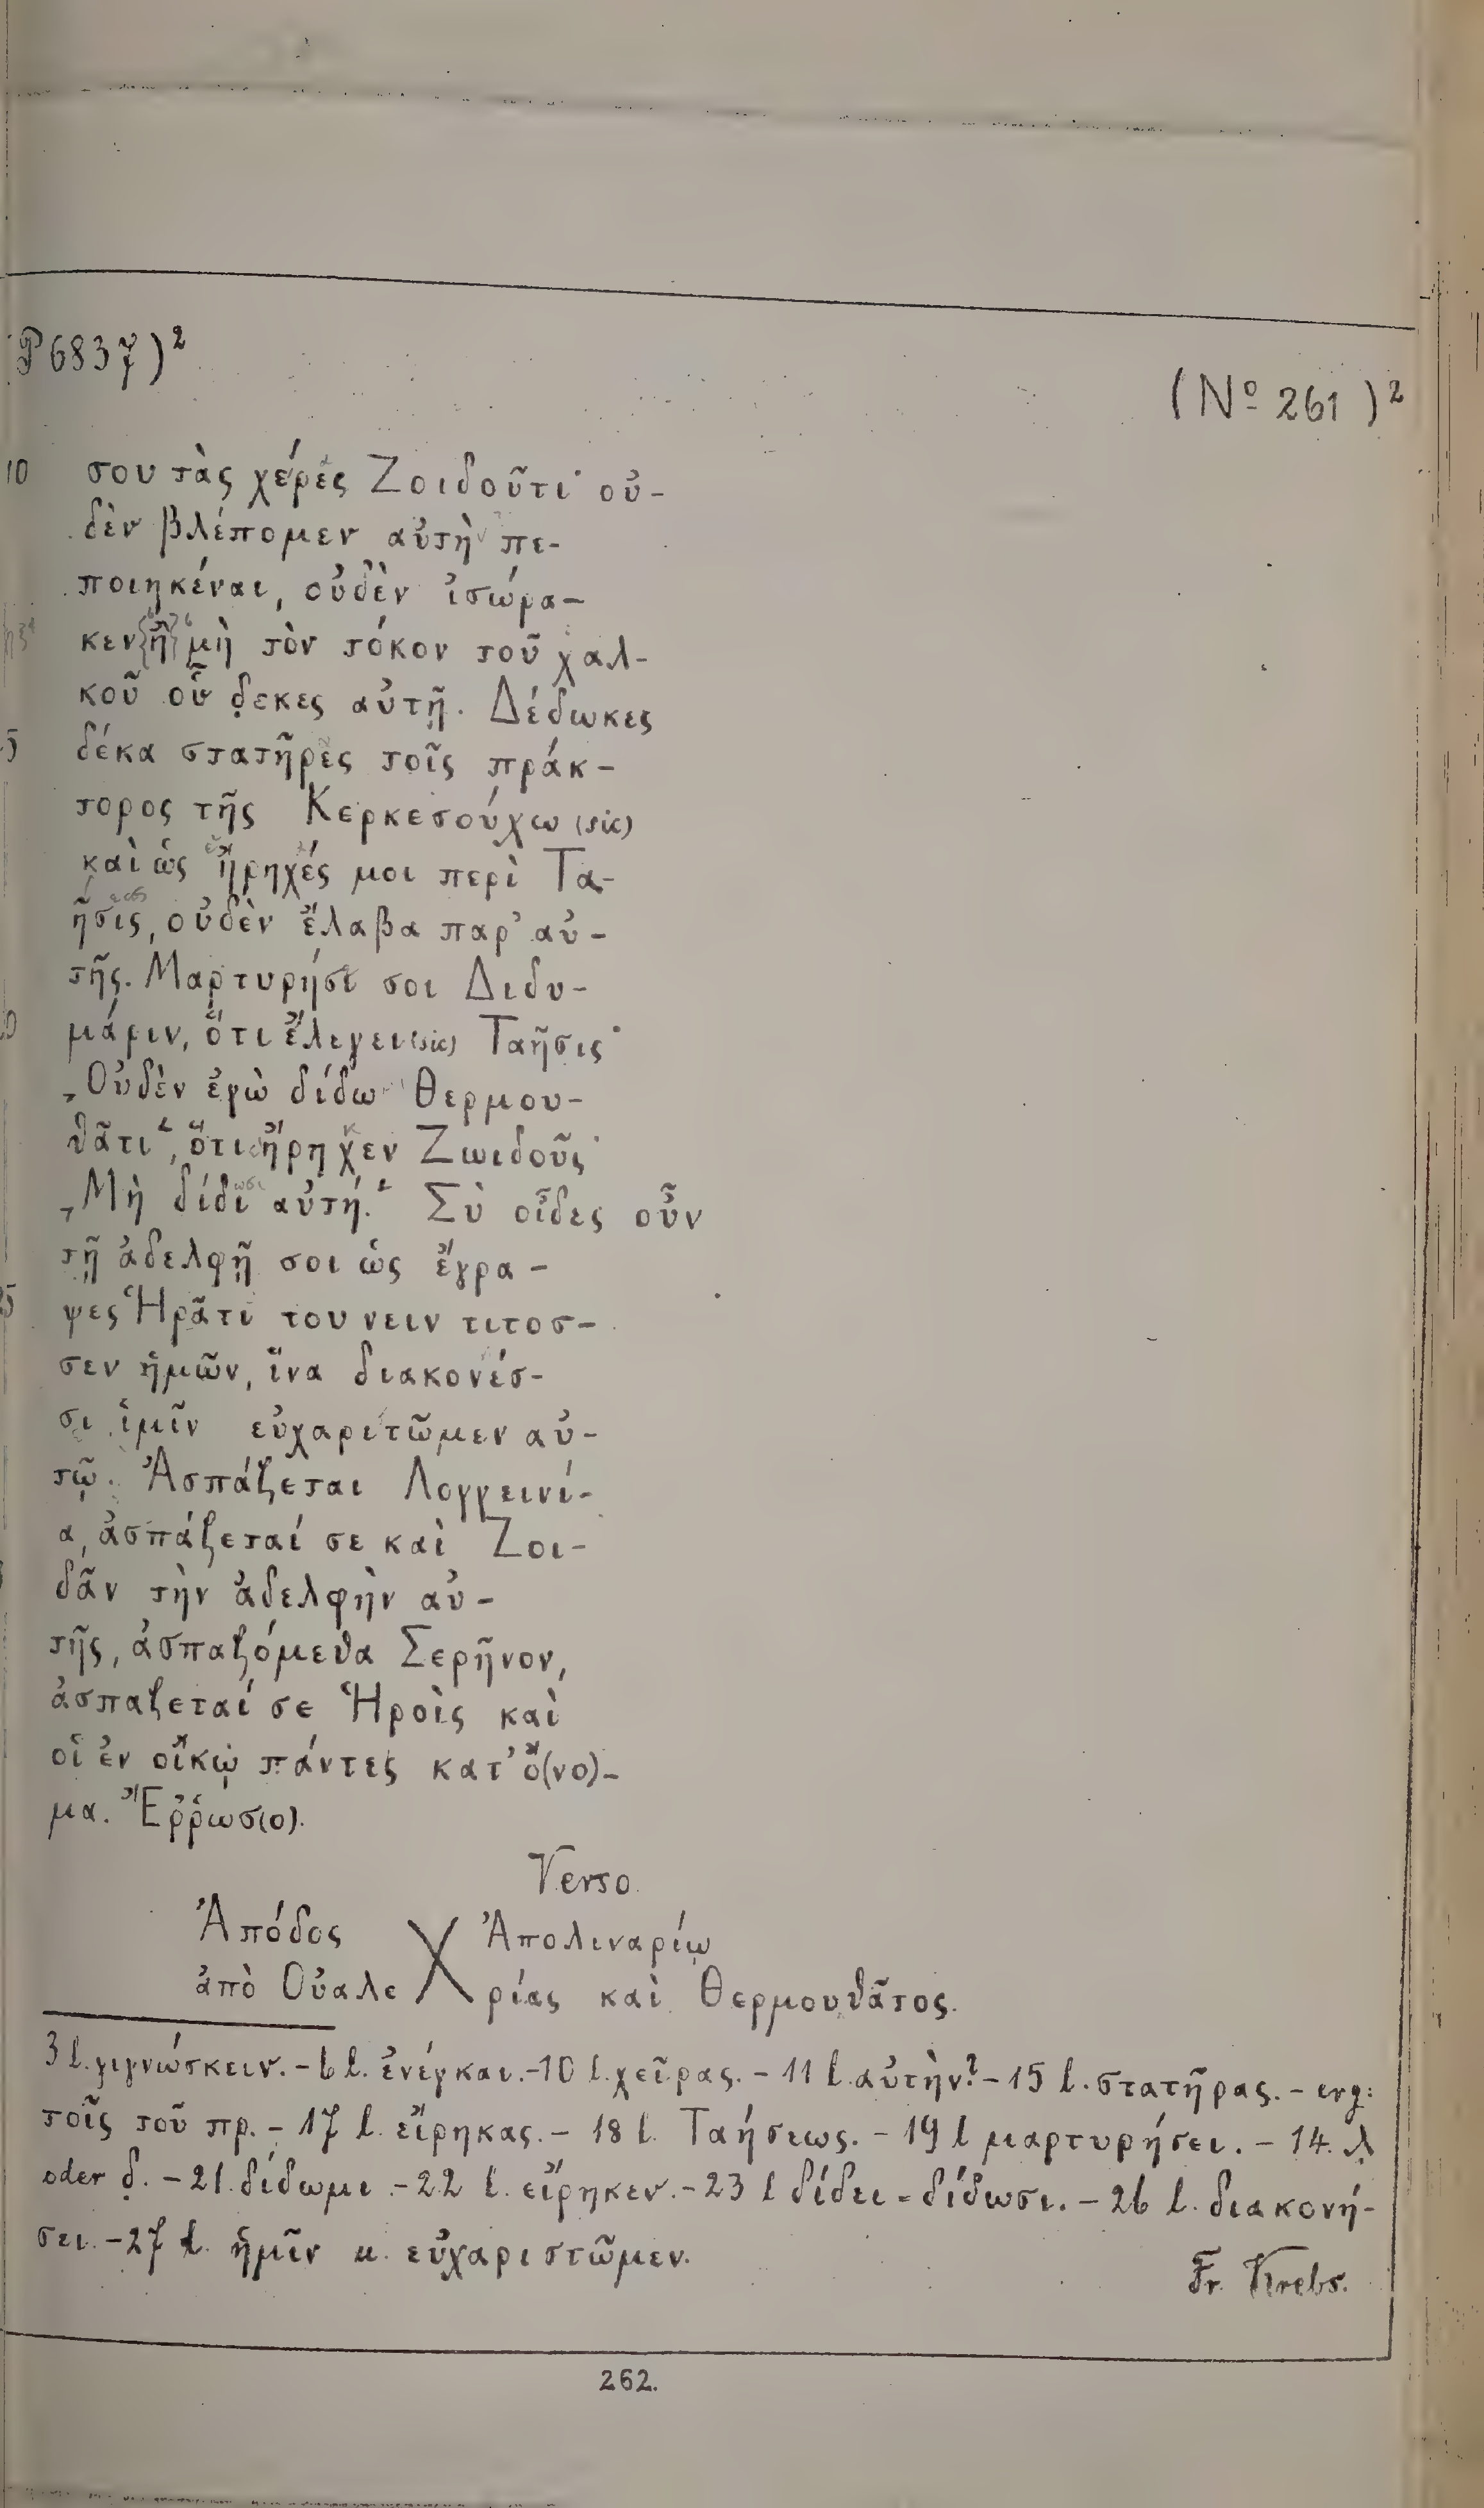 P 6837)²
(Nº 261)²
10 σου τὰς χέρες Ζοιδοῦτι· οὐ-
δὲν βλέπομεν αὐτὴ πε-
ποιηκέναι, οὐδὲν ἰσώρα-
κεν {ἢ} μὴ τὸν τόκον τοῦ χαλ-
κοῦ οὗ δ̣εκες αὐτῇ. Δέδωκες
5 δέκα στατῆρες τοῖς πράκ-
τορος τῆς Κερκεσούχω (sic)
καὶ ὡς ἤρηχές μοι περὶ Τα-
ῆσις, οὐδὲν ἔλαβα παρ' αὐ-
τῆς. Μαρτυρήσι σοι Διδυ-
0 μάριν, ὅτι ἔλεγει (sic) Ταῆσις·
„Οὐδὲν ἐγὼ δίδω Θερμου-
θᾶτι“, ὅτι ἤρηχεν Ζωιδοῦς·
„Μὴ δίδι αὐτή.“ Σὺ οἶδες οὖν
τῇ ἀδελφῇ σοι ὡς ἔγρα-
5 ψες Ἡρᾶτι του νειν τιτοσ-
σεν ἡμῶν, ἵνα διακονέσ-
σι ἱμῖν εὐχαριτῶμεν αὐ-
τῷ. Ἀσπάζεται Λογγεινί-
α, ἀσπάζεταί σε καὶ Ζοι-
δᾶν τὴν ἀδελφὴν αὐ-
τῆς, ἀσπαζόμεθα Σερῆνον,
ἀσπαζεταί σε Ἡροὶς καὶ
οἱ ἐν οἴκῳ πάντες κατ' ὄ(νο)-
μα. Ἔρρωσ(ο).
Verso
Ἀπόδος X Ἀπολιναρίῳ
ἀπὸ Οὐαλε ρίας καὶ Θερμουθᾶτος.
3 l. γιγνώσκειν. – 6 l. ἐνέγκαι. – 10 l. χεῖρας. – 11 l. αὐτὴν? – 15 l. στατῆρας. – erg:
τοῖς τοῦ πρ. – 17 l. εἴρηκας. – 18 l. Ταήσεως. – 19 l μαρτυρήσει. – 14. λ̣
oder δ̣. – 21. δίδωμι. – 22 l. εἴρηκεν. – 23 l δίδει = δίδωσι. – 26 l. διακονή-
σει. – 27 l. ἡμῖν u. εὐχαριστῶμεν.
Fr. Krebs.
262.